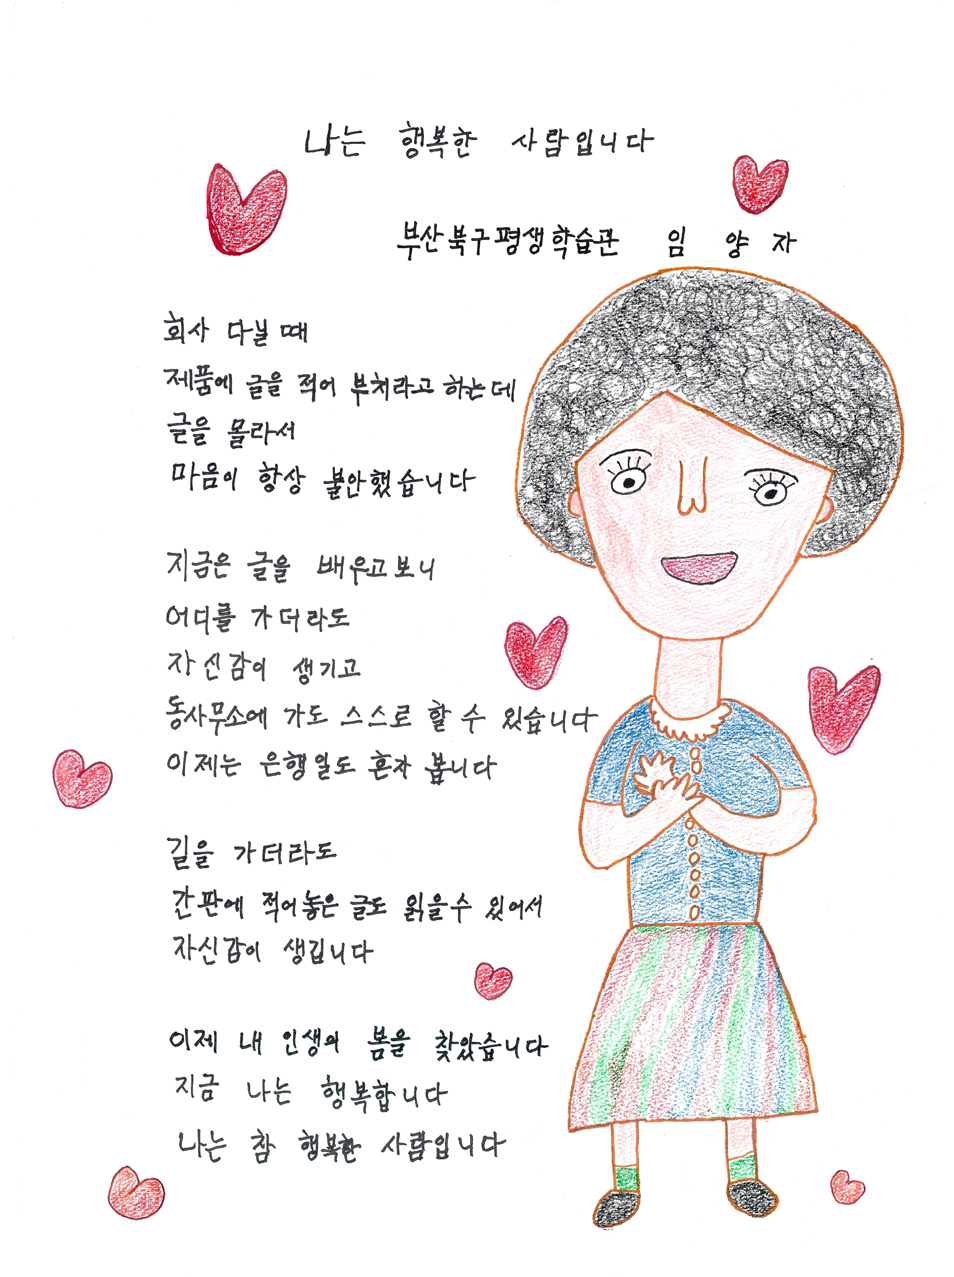 나는 행복한 사람입니다
부산북구평생학습관 임양자
회사 다닐 때
제품에 글을 적어 부쳐라고 하는데
글을 몰라서
마음이 항상 불안했습니다
지금은 글을 배우고보니
어디를 가더라도
자신감이 생기고
동사무소에 가도 스스로 할 수 있습니다
이제는 은행일도 혼자 봅니다
길을 가더라도
간판에 적어놓은 글도 읽을수 있어서
자신감이 생깁니다
이제 내 인생의 봄을 찾았습니다
지금 나는 행복합니다
나는 참 행복한 사람입니다